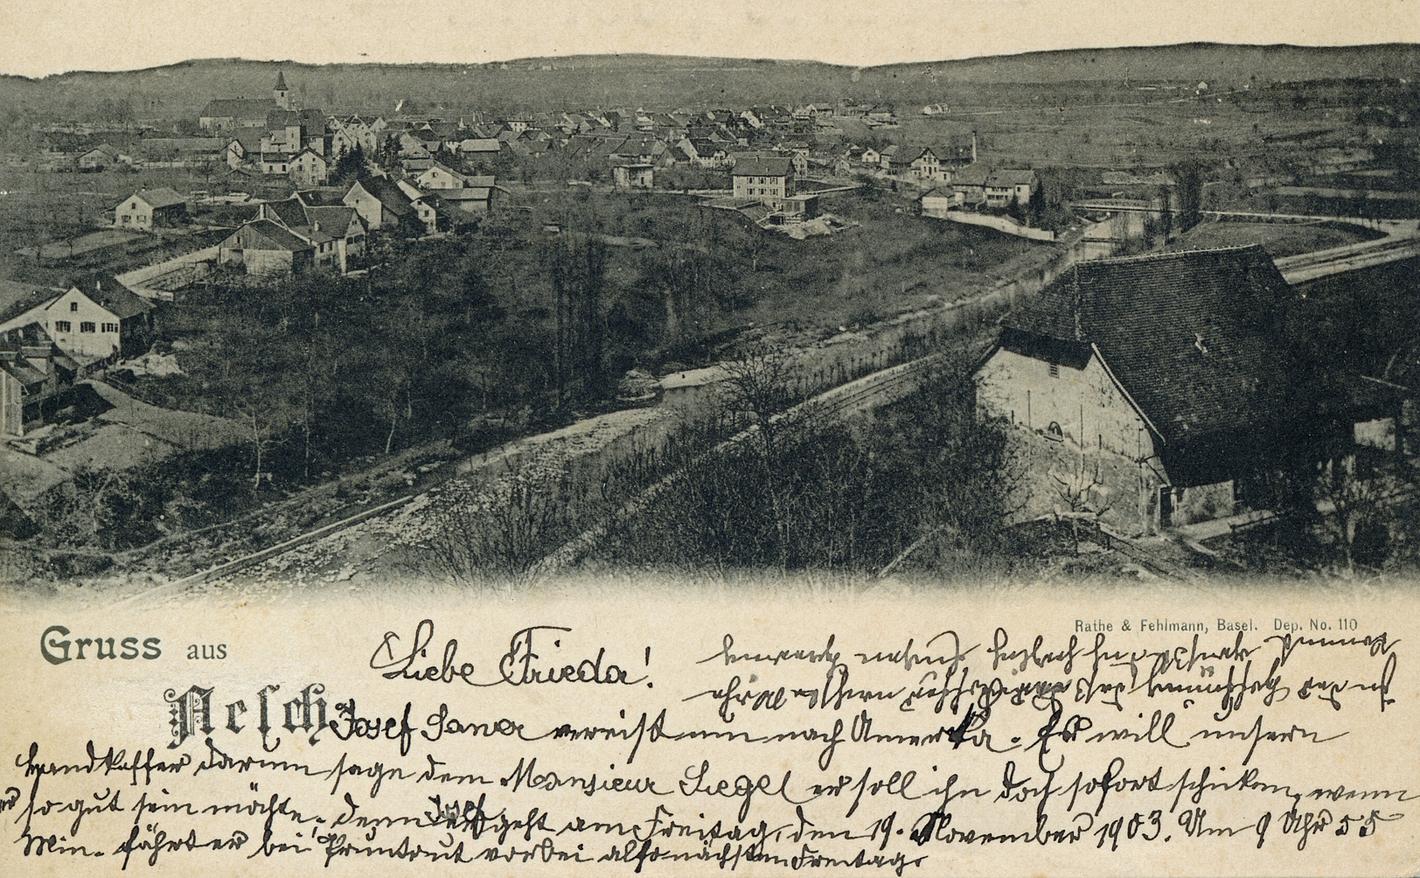 Rathe & Fehlmann, Basel. Dep. No. 110
Gruss aus
Aesch
Liebe Frieda!
Josef Saner verreist nun nach Amerika. Er will unsern
Handkoffer darum sage dem Monsieur Siegel er soll ihn doch sofort schicken, wenn
er so gut sein möchte, denn Josef geht am Freitag, den 19. November 1903. Um 9 Uhr 55
Min. fährt er bei Pruntrut vorbei also nächsten Freitag.